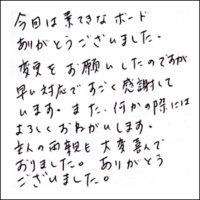 今回は素てきなボード
ありがとうございました.
変更をお願いしたのですが
早い対応ですごく感謝して
います。また、何かの際には
よろしくおねがいします。
主人の両親も大変喜んで
おりました。ありがとう
ございました。